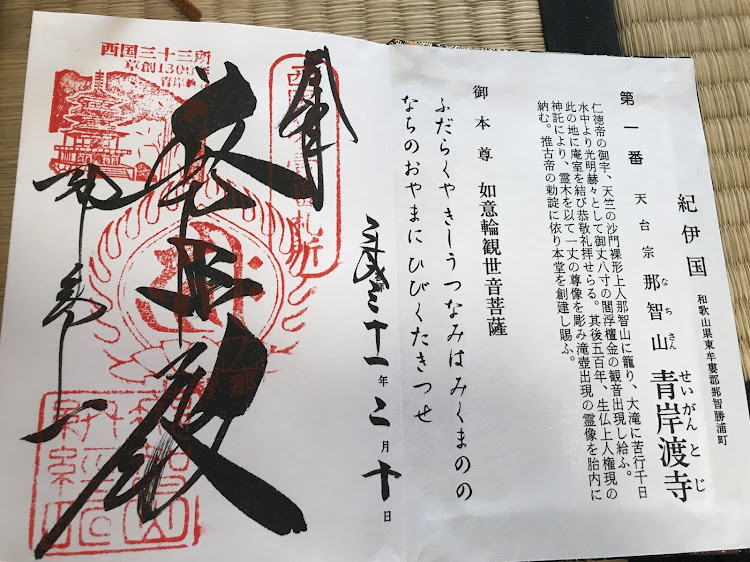 紀伊国
和歌山県東牟婁郡那智勝浦町
第一番 天台宗 那智山 青岸渡寺
なち さん せいがん とじ
仁徳帝の御宇、天竺の沙門裸形上人那智山に籠り、大滝に苦行千日
水中より光明赫々として御丈八寸の閻浮檀金の観音出現し給ふ。
此の地に庵室を結び恭敬礼拝せらる。其後五百年、生仏上人権現の
神託により、霊木を以て一丈の尊像を彫み滝壺出現の霊像を胎内に
納む。推古帝の勅諚に依り本堂を創建し賜ふ。
御本尊 如意輪観世音菩薩
ふだらくやきしうつなみはみくまのの
なちのおやまに ひびくたきつせ
三十一年二月十日
奉拝
西国三十三所
草創1300年
那智山